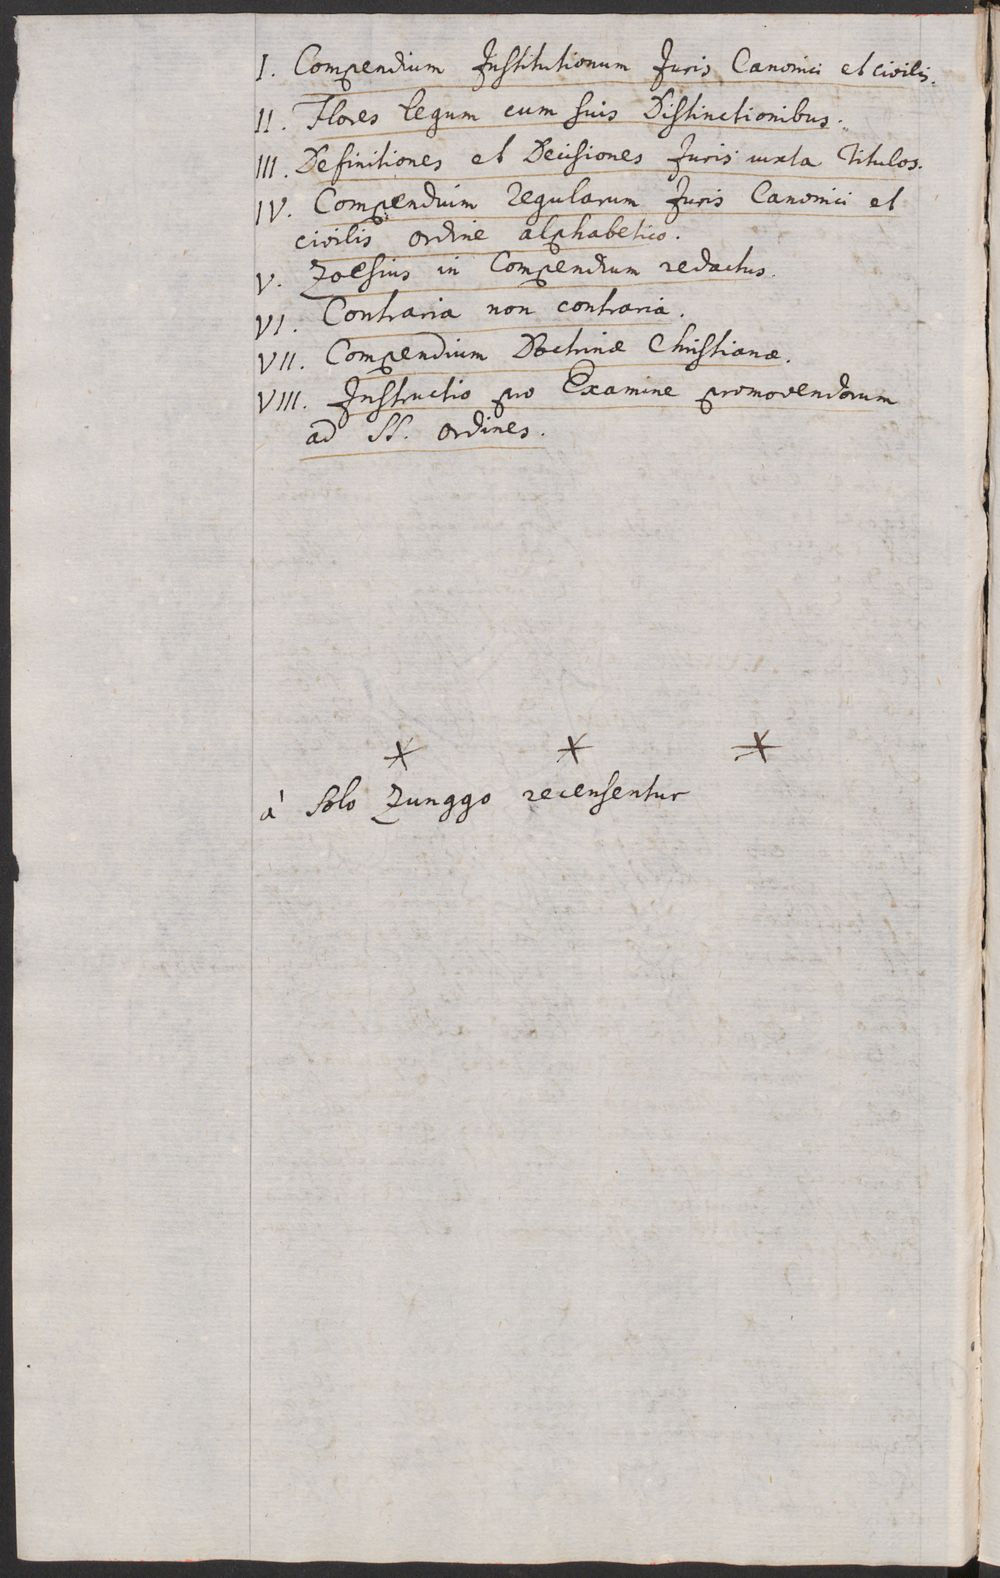 I. Compendium Institutionum Juris Canonici et civilis.
II. Flores legum cum suis Distinctionibus.
III. Definitiones et Decisiones Juris iuxta Titulos.
IV. Compendium regularum Juris Canonici et
civilis ordine alphabetico.
V. Zoesius in Compendium redactus.
VI. Contraria non contraria.
VII. Compendium Doctrinæ Christianæ.
VIII. Instructio pro Examine promovendorum
ad SS. ordines.
* * *
à solo Zunggo recensentur